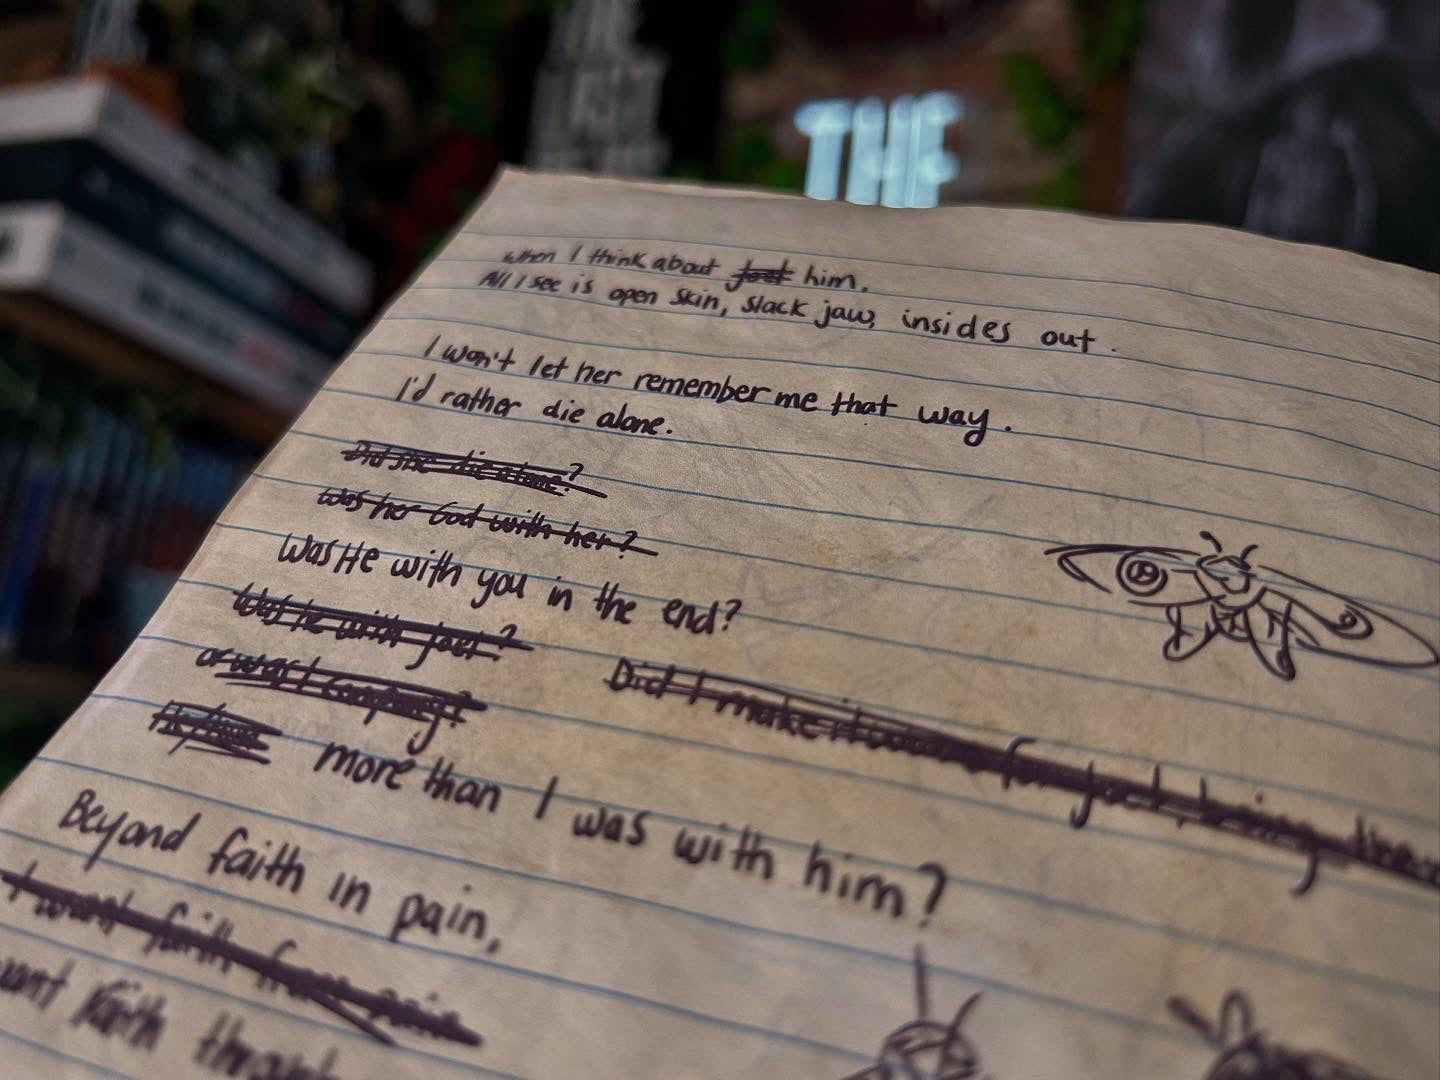 THE
When I think about Joel him,
All I see is open skin, slack jaw, insides out.
I won't let her remember me that way.
I'd rather die alone.
Did she die alone?
Was her God with her?
Was He with you in the end?
Was he with Joel?
or was I company?
Did I make it for Joel, being there
more than I was with him?
Beyond faith in pain,
I want faith from pain
want faith